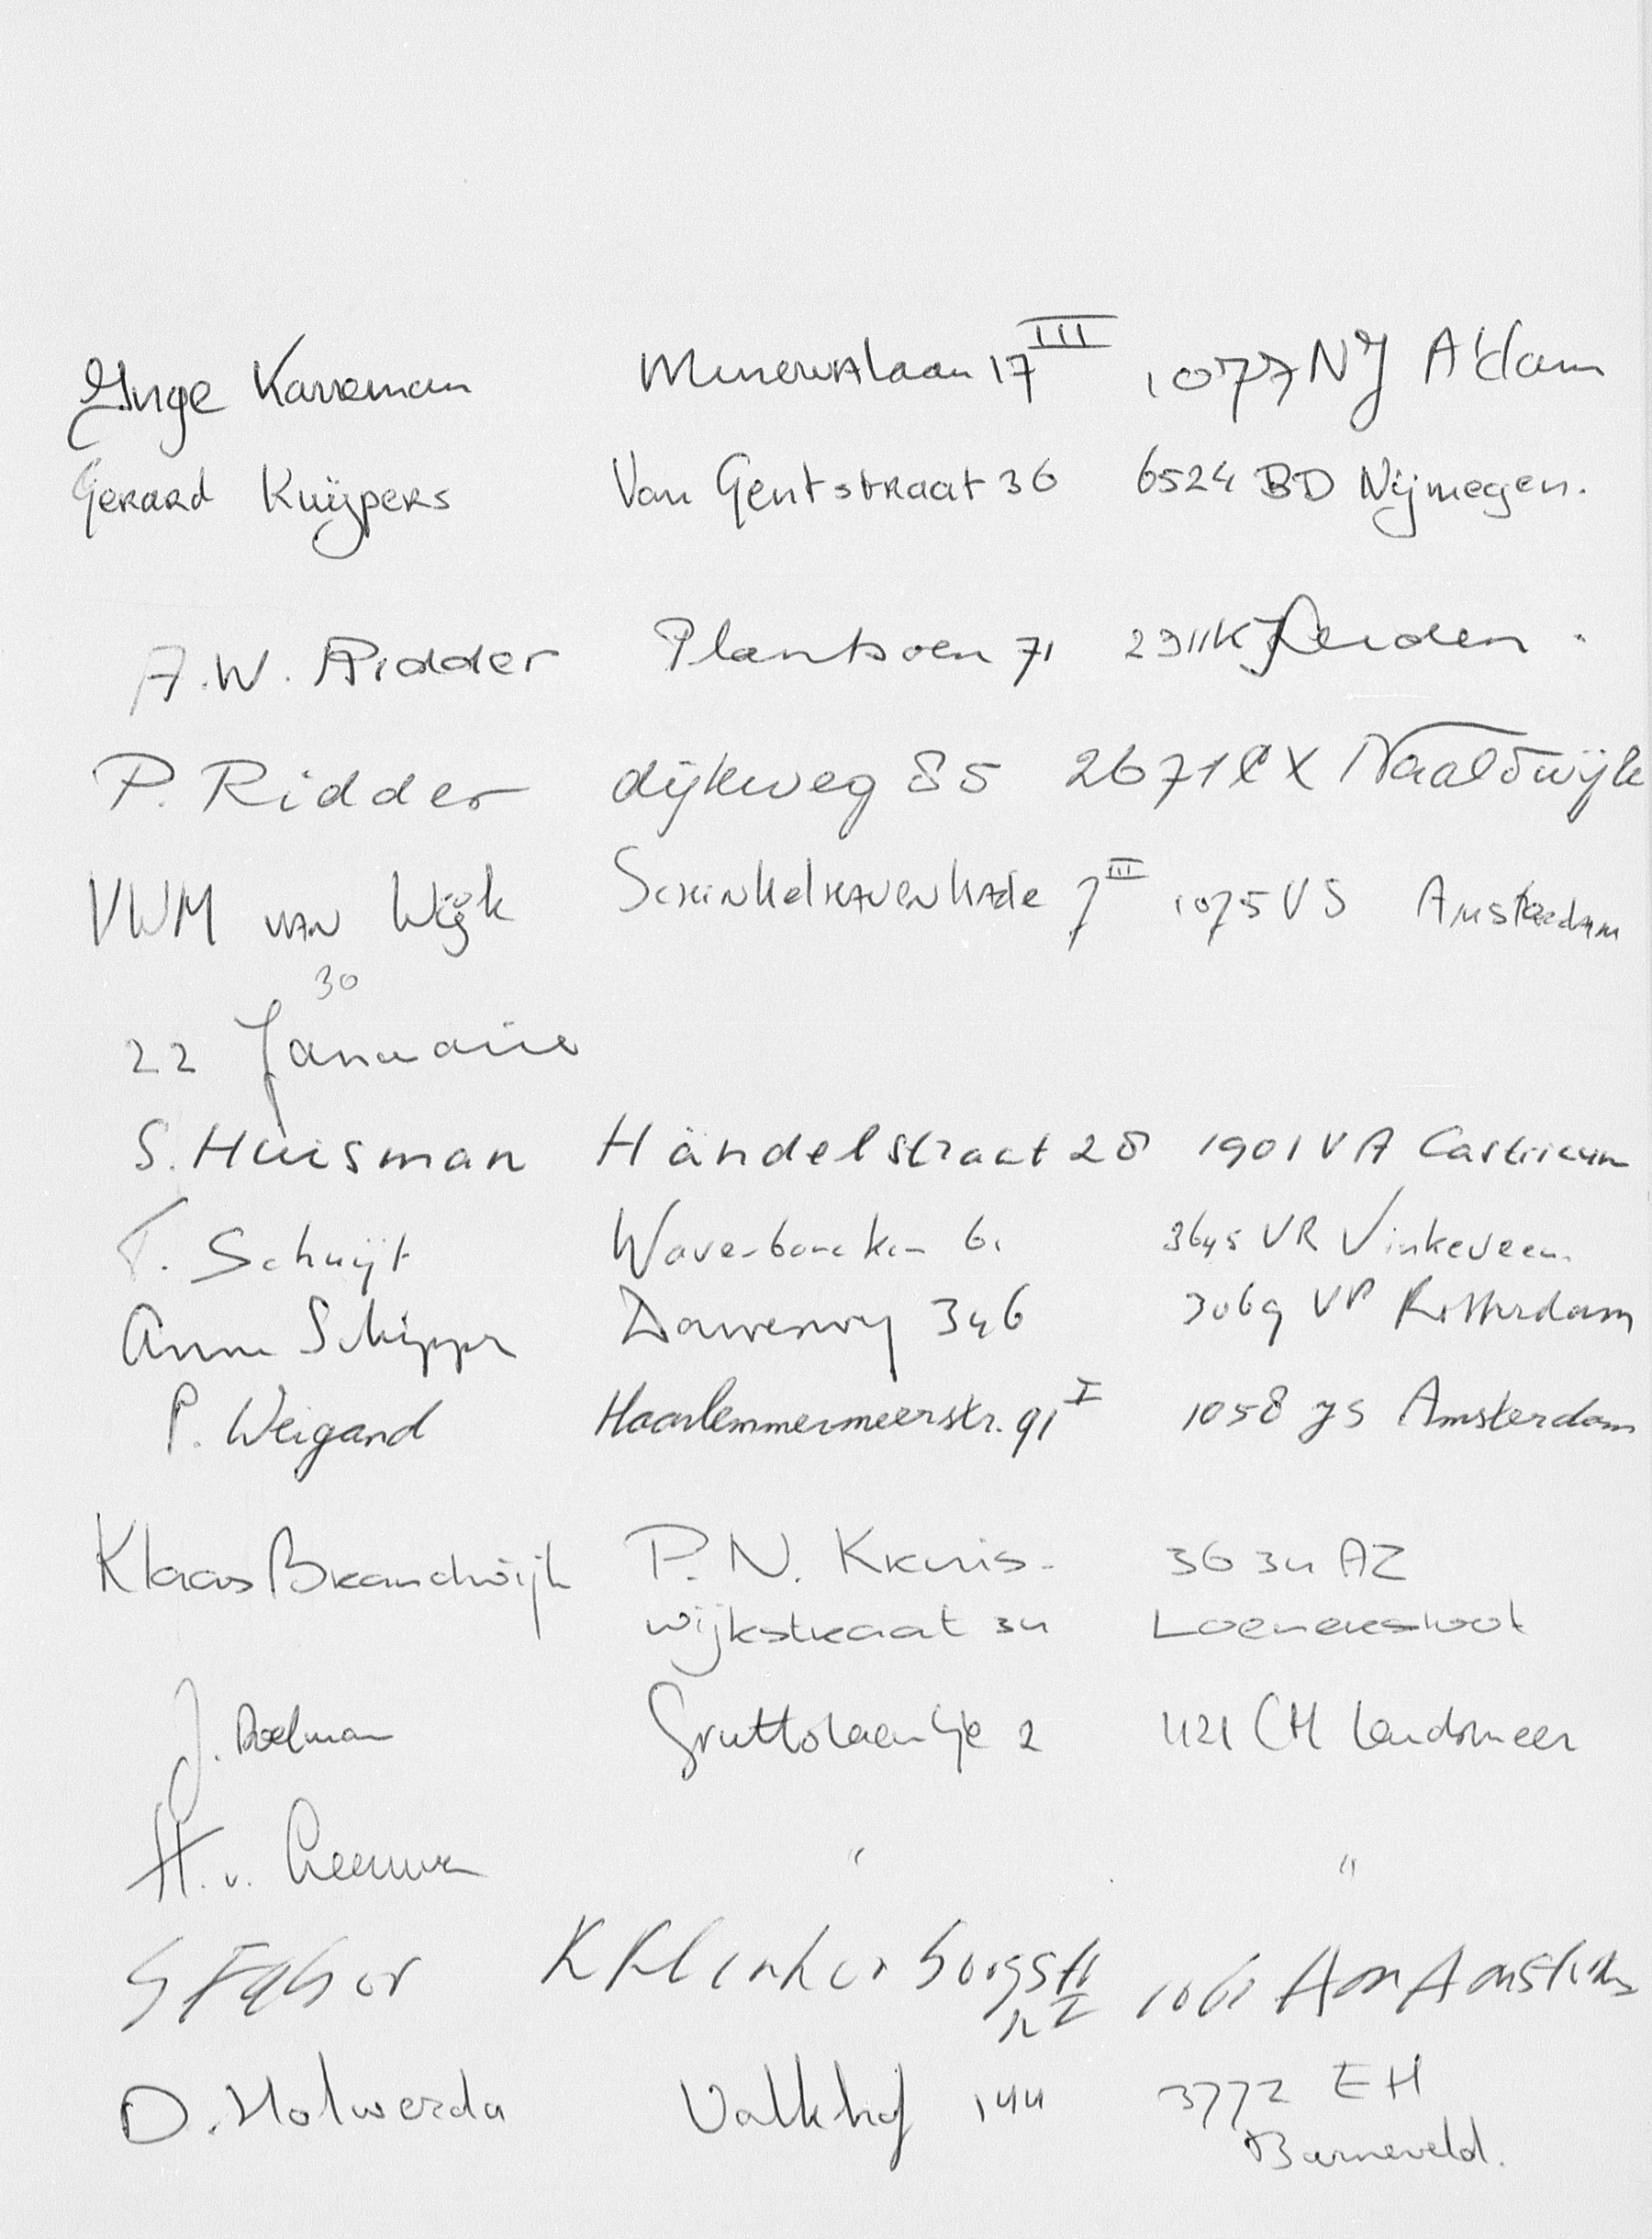 Inge Karreman Minervalaan 17 III 1077 NJ A'dam
Gerard Kuijpers Van Gentstraat 36 6524 BD Nijmegen.
A.W. Ridder Plantsoen 71 2311 KJ Leiden.
P. Ridder dijkweg 85 2671 CX Naaldwijk
VWM van Wijk Schinkelhavenkade 7 III 1075 VS Amsterdam
30
22 Januarie
S. Huisman Händelstraat 28 1901 VA Castricum
T. Schuijt 3645 VR Vinkeveen.
Anna Schipper 346 3069 VP Rotterdam
P. Weigand Haarlemmermeerstr. 91 I 1058 JS Amsterdam
Klaas Brandwijk P. N. Kruis- 3634 AZ
wijkstraat 34 Loenersloot
J. Doelman Gruttolaentje 2 1121 CM Landsmeer
H. v. Leeuwen " "
S Faber K Klinkerborgstr 1061 Amsterdam
D. Holwerda Valkhof 144 3772 EH
Barneveld.